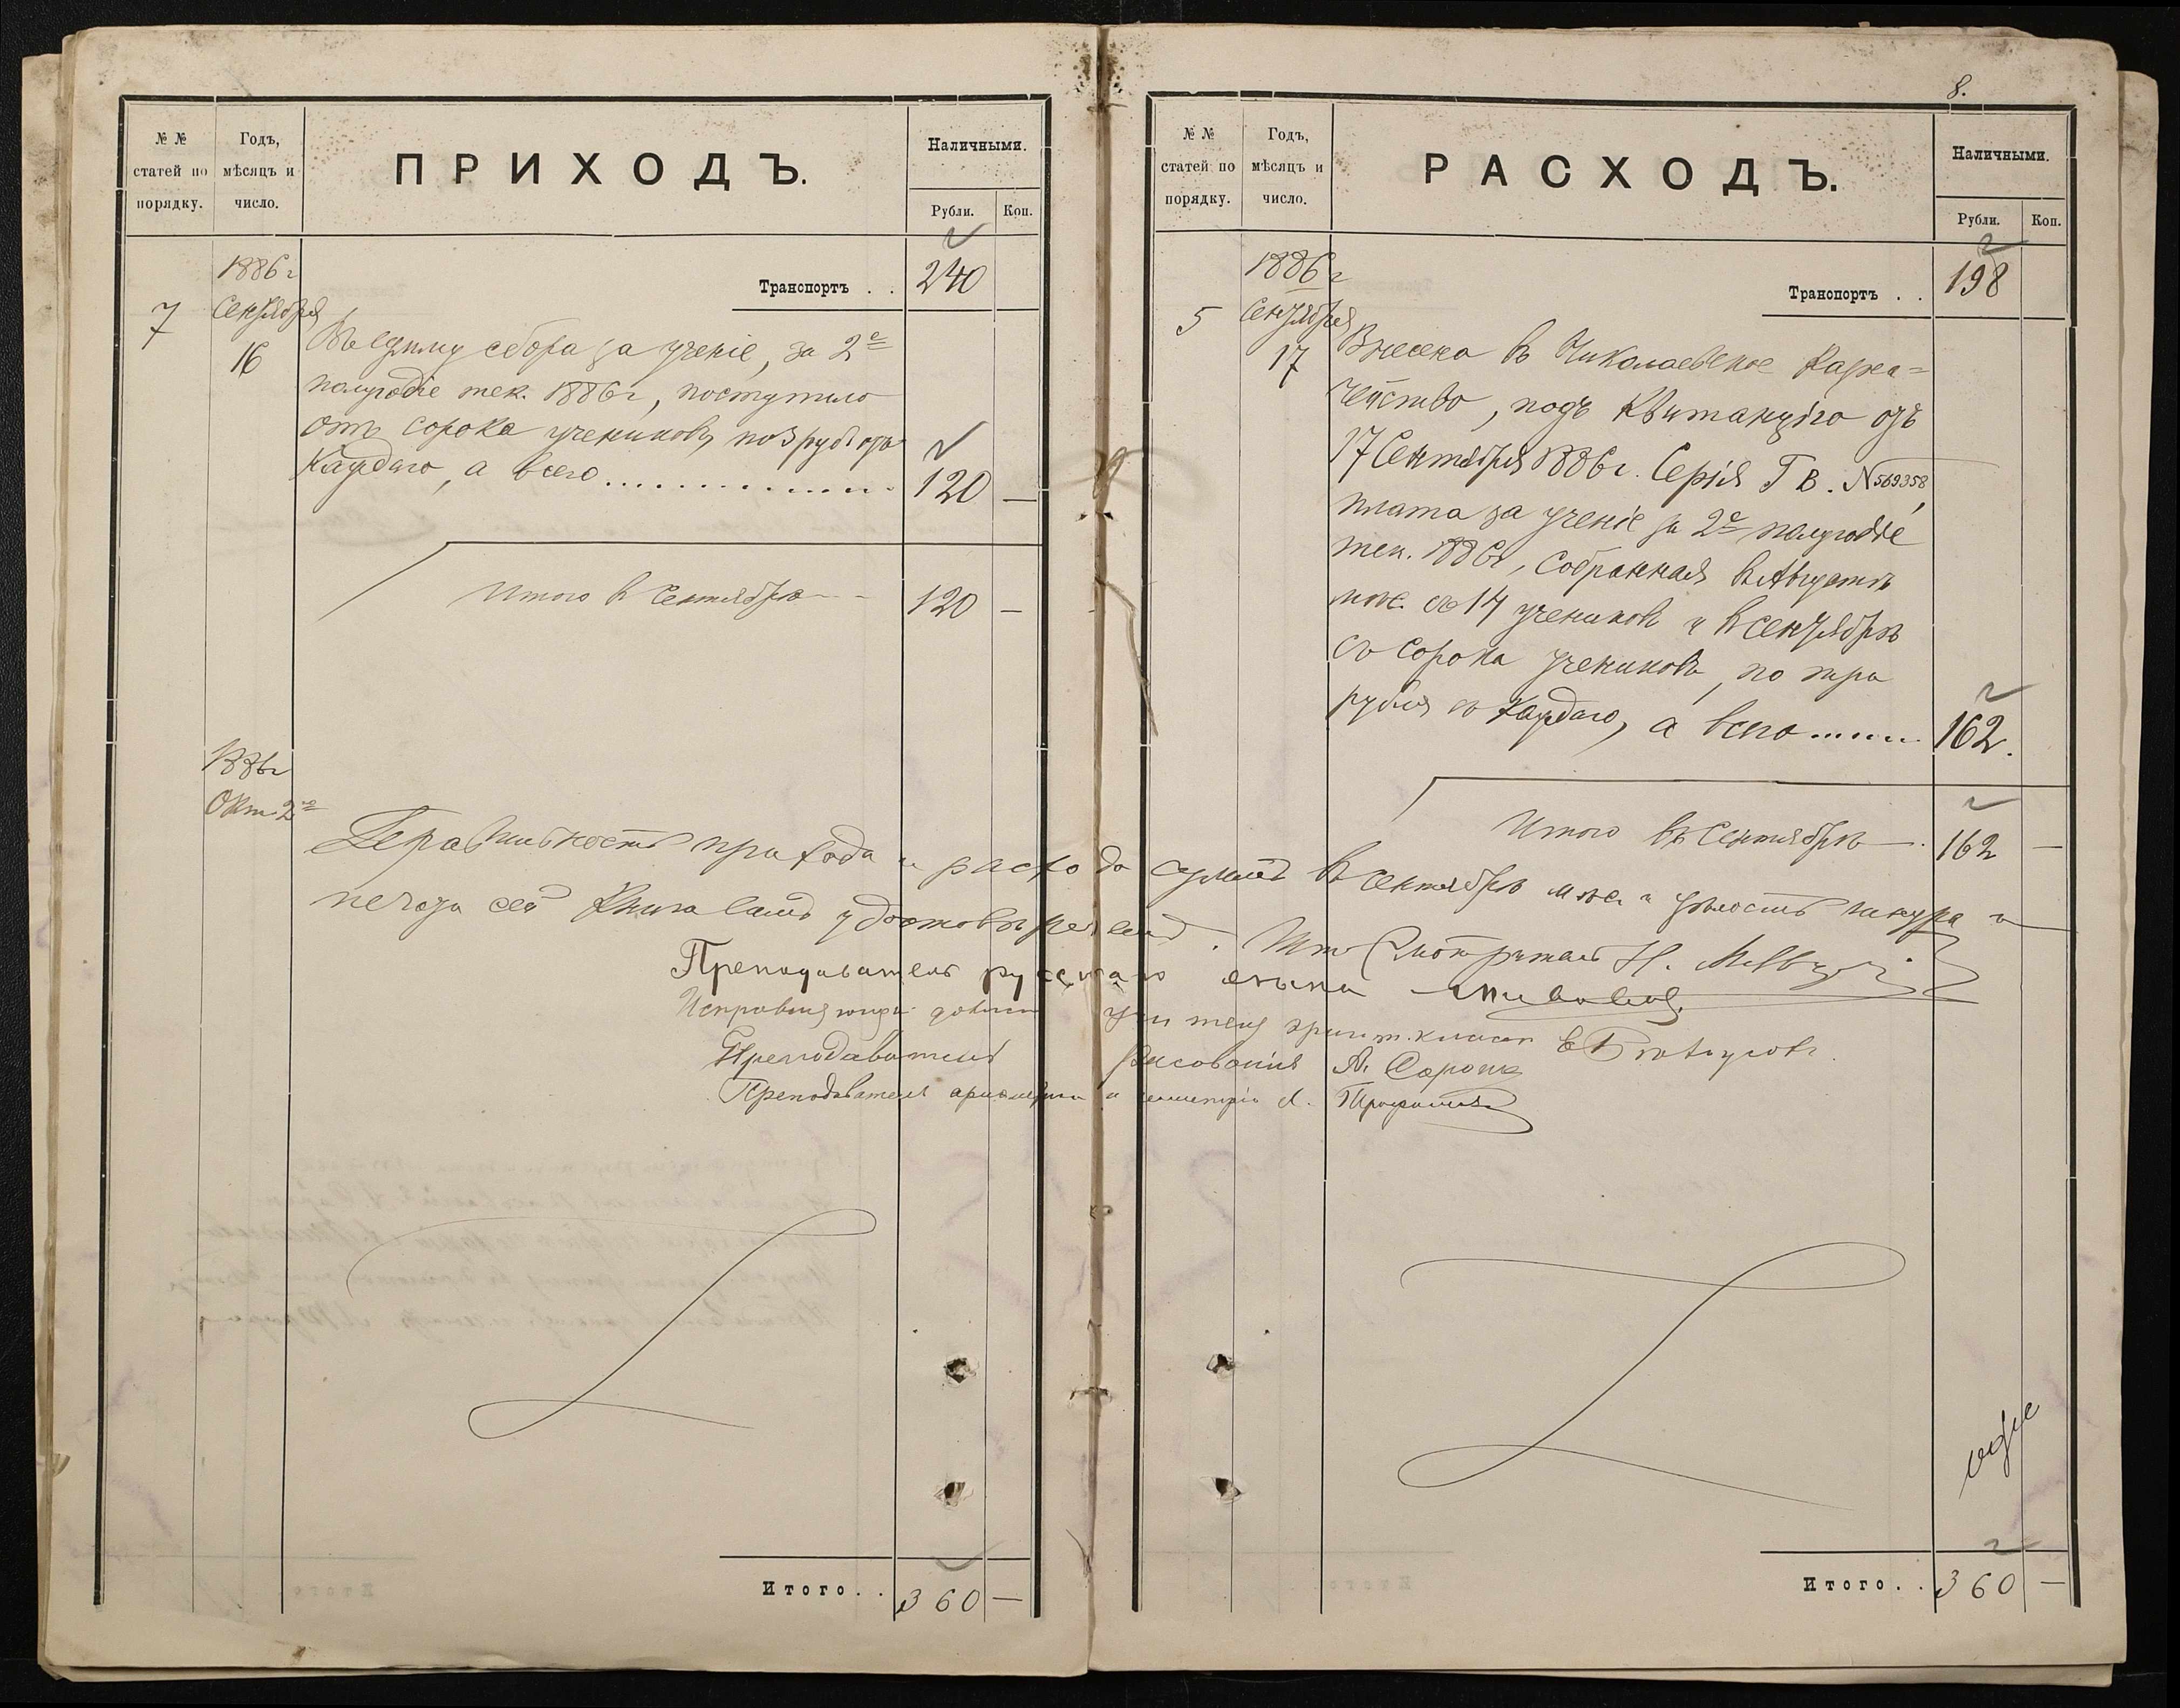 8.
№ № статей по порядку.
Годъ, мѣсяцъ и число.
ПРИХОДЪ.
Наличными.
Рубли.
Коп.
1886 г
Транспортъ . . 240
7
Сентября
16
сбора за ученіе, за 2е
полугодіе тек. 1886 г, поступило
отъ сорока учениковъ, по 3 руб. отъ
каждаго, а всего .............. 120 —
Итого въ Сентябрѣ - - 120 —
1886 г
Окт. 2го
№ № статей по порядку.
Годъ, мѣсяцъ и число.
РАСХОДЪ.
Наличными.
Рубли.
Коп.
1886 г
Транспортъ . . 198
5
Сентября
17
Внесена въ Николаевское Казна=
чейство, подъ квитанцію отъ
17 Сентября 1886 г. Серія Г В. № 569358,
плата за ученіе за 2е полугодіе
тек. 1886 г, собранная въ Августѣ
мѣс. съ 14 учениковъ и въ сентябрѣ
съ сорока учениковъ, по три
рубля съ каждаго, а всего ....... 162.
Итого въ Сентябрѣ —. 162 —
прихода и расхода суммъ въ сентябрѣ мѣс. и цѣлость шнура и
печати сей книги удостовѣряемъ. Смотритель Н.
Преподаватель русскаго языка
Исправляющій должн. учителя пригот. класса
Преподаватель рисованія А. Сорока
Преподаватель ариѳметики и геометріи А. Трофимов
Итого . . 360 —
Итого . . 360 —